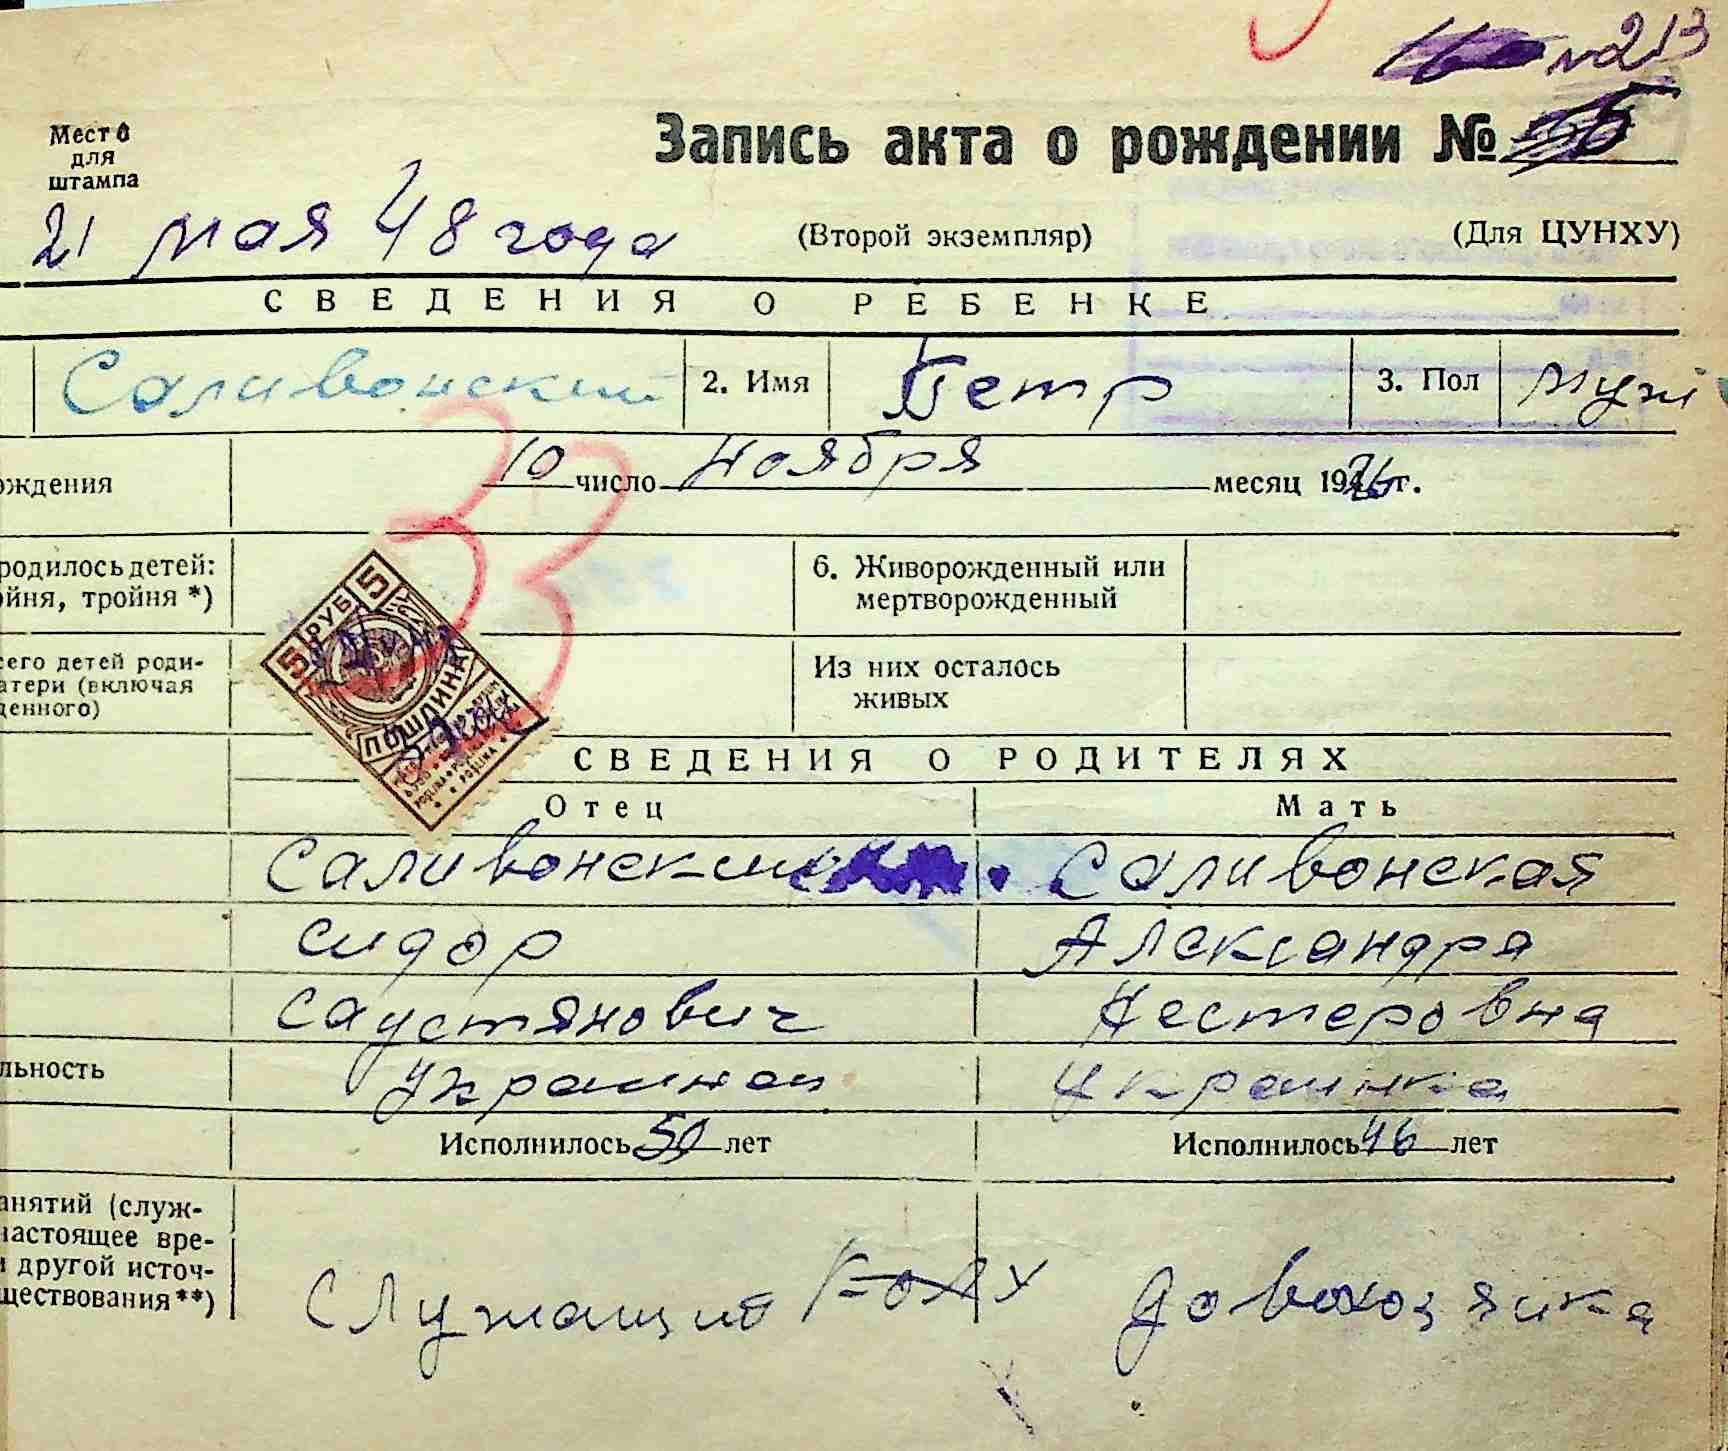 №213
Место
для
штампа
Запись акта о рождении №
21 мая 48 года (Второй экземпляр) (Для ЦУНХУ)
СВЕДЕНИЯ О РЕБЕНКЕ
Саливонский 2. Имя Петр 3. Пол муж
ождения 10 число ноября месяц 1926 г.
родилось детей:
ойня, тройня *)
6. Живорожденный или
мертворожденный
сего детей роди-
атери (включая
денного)
Из них осталось
живых
5 РУБ 5
ПОШЛИНА
СВЕДЕНИЯ О РОДИТЕЛЯХ
Отец Мать
Саливонский Саливонская
Сидор Александра
Саустянович Нестеровна
льность украинец украинка
Исполнилось 50 лет Исполнилось 46 лет
анятий (служ-
настоящее вре-
и другой источ-
ществования**)
Служащий домохозяика